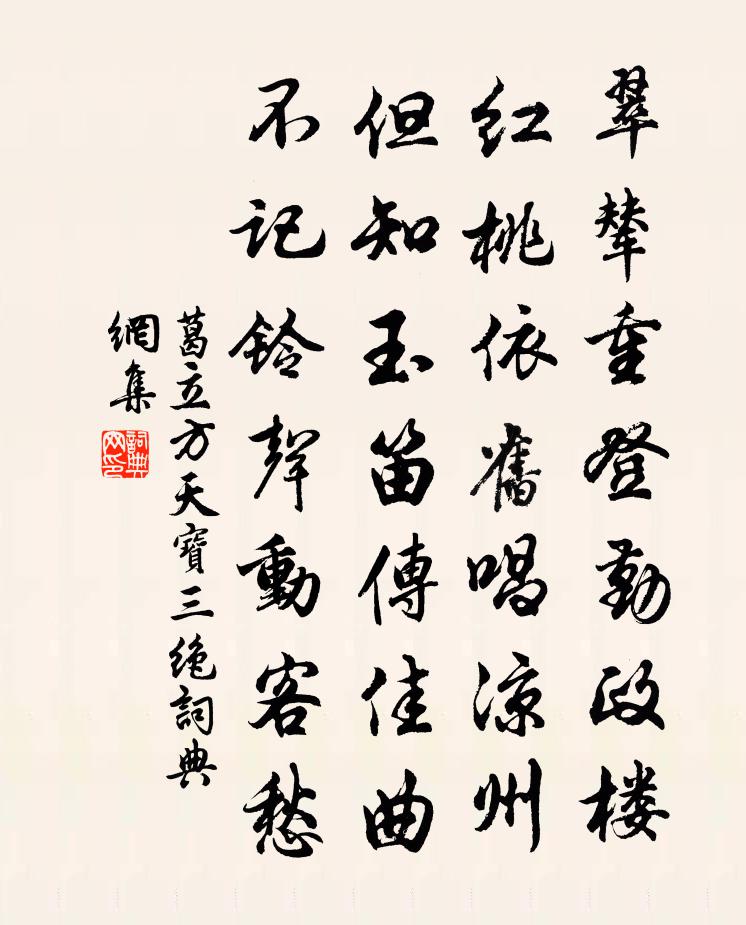 翠輦重登勤政楼
紅桃依舊唱涼州
但知玉笛傳佳曲
不記鈴聲動客愁
葛立方天寶三絶詞典
網集
詞典
网印